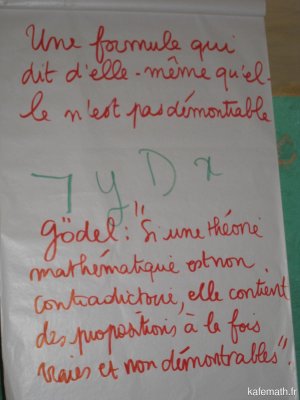 Une formule qui
dit d'elle-même qu'el-
le n'est pas démontrable
¬ y D x
Gödel : "Si une théorie
mathématique est non
contradictoire, elle contient
des propositions à la fois
vraies et non démontrables".
kafemath.fr